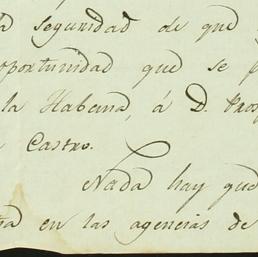 seguridad de que
oportunidad que se
la Habana, á D.
Castro.
Nada hay que
en las agencias de